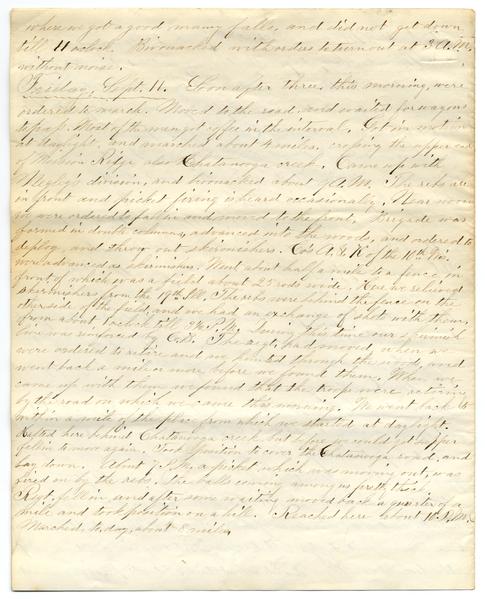 where we got a good many falls, and did not get down
till 11 o'clock. Bivouacked with orders to turn out at 3 A.M.
without noise.
Friday, Sept. 11. Soon after three this morning, were
ordered to march. Moved to the road, and waited for wagons
to pass. Most of the men got coffee in the interval. Got in motion
at daylight, and marched about 4 miles, crossing the upper end
of Mission Ridge also Chatanooga creek. Came up with
Negley's division, and bivouacked about A.M. The rebs are
in front and picket firing is heard occasionally. Near noon
we were ordered to fall in and moved to the front. Brigade was
formed in double column, advanced into the woods, and ordered to
deploy, and throw out skirmishers. Co's A & K of the 10th Wis.
were advanced as skirmishers. Went about half a mile to a fence in
front of which was a field about 25 rods wide. Here we relieved
skirmishers from the 19th Ill. The rebs were behind the fence on the
other side of the field, and we had an exchange of shot with them,
from about 1 o'clock till P.M. During this time our skirmish
line was reinforced by Co. The regt. had moved, when we
were ordered to retire and we hunted through the woods, and
went back a mile or more before we found them. When we
came up with them we found that the troops were retiring
by the road on which we came this morning. We went back to
within a mile of the place from which we started at daylight.
Halted here behind Chatanooga creek but before we could get supper
fell in to move again. Took position to cover the Chatanooga road, and
lay down. About 7 P.M. a picket which was moving out, was
fired on by the rebs, the balls coming among us pretty thick.
Regt. fell in and after some waiting moved back a quarter of a
mile and took position on a hill. Reached here about 10 P.M.
Marched, to day, about 8 miles.